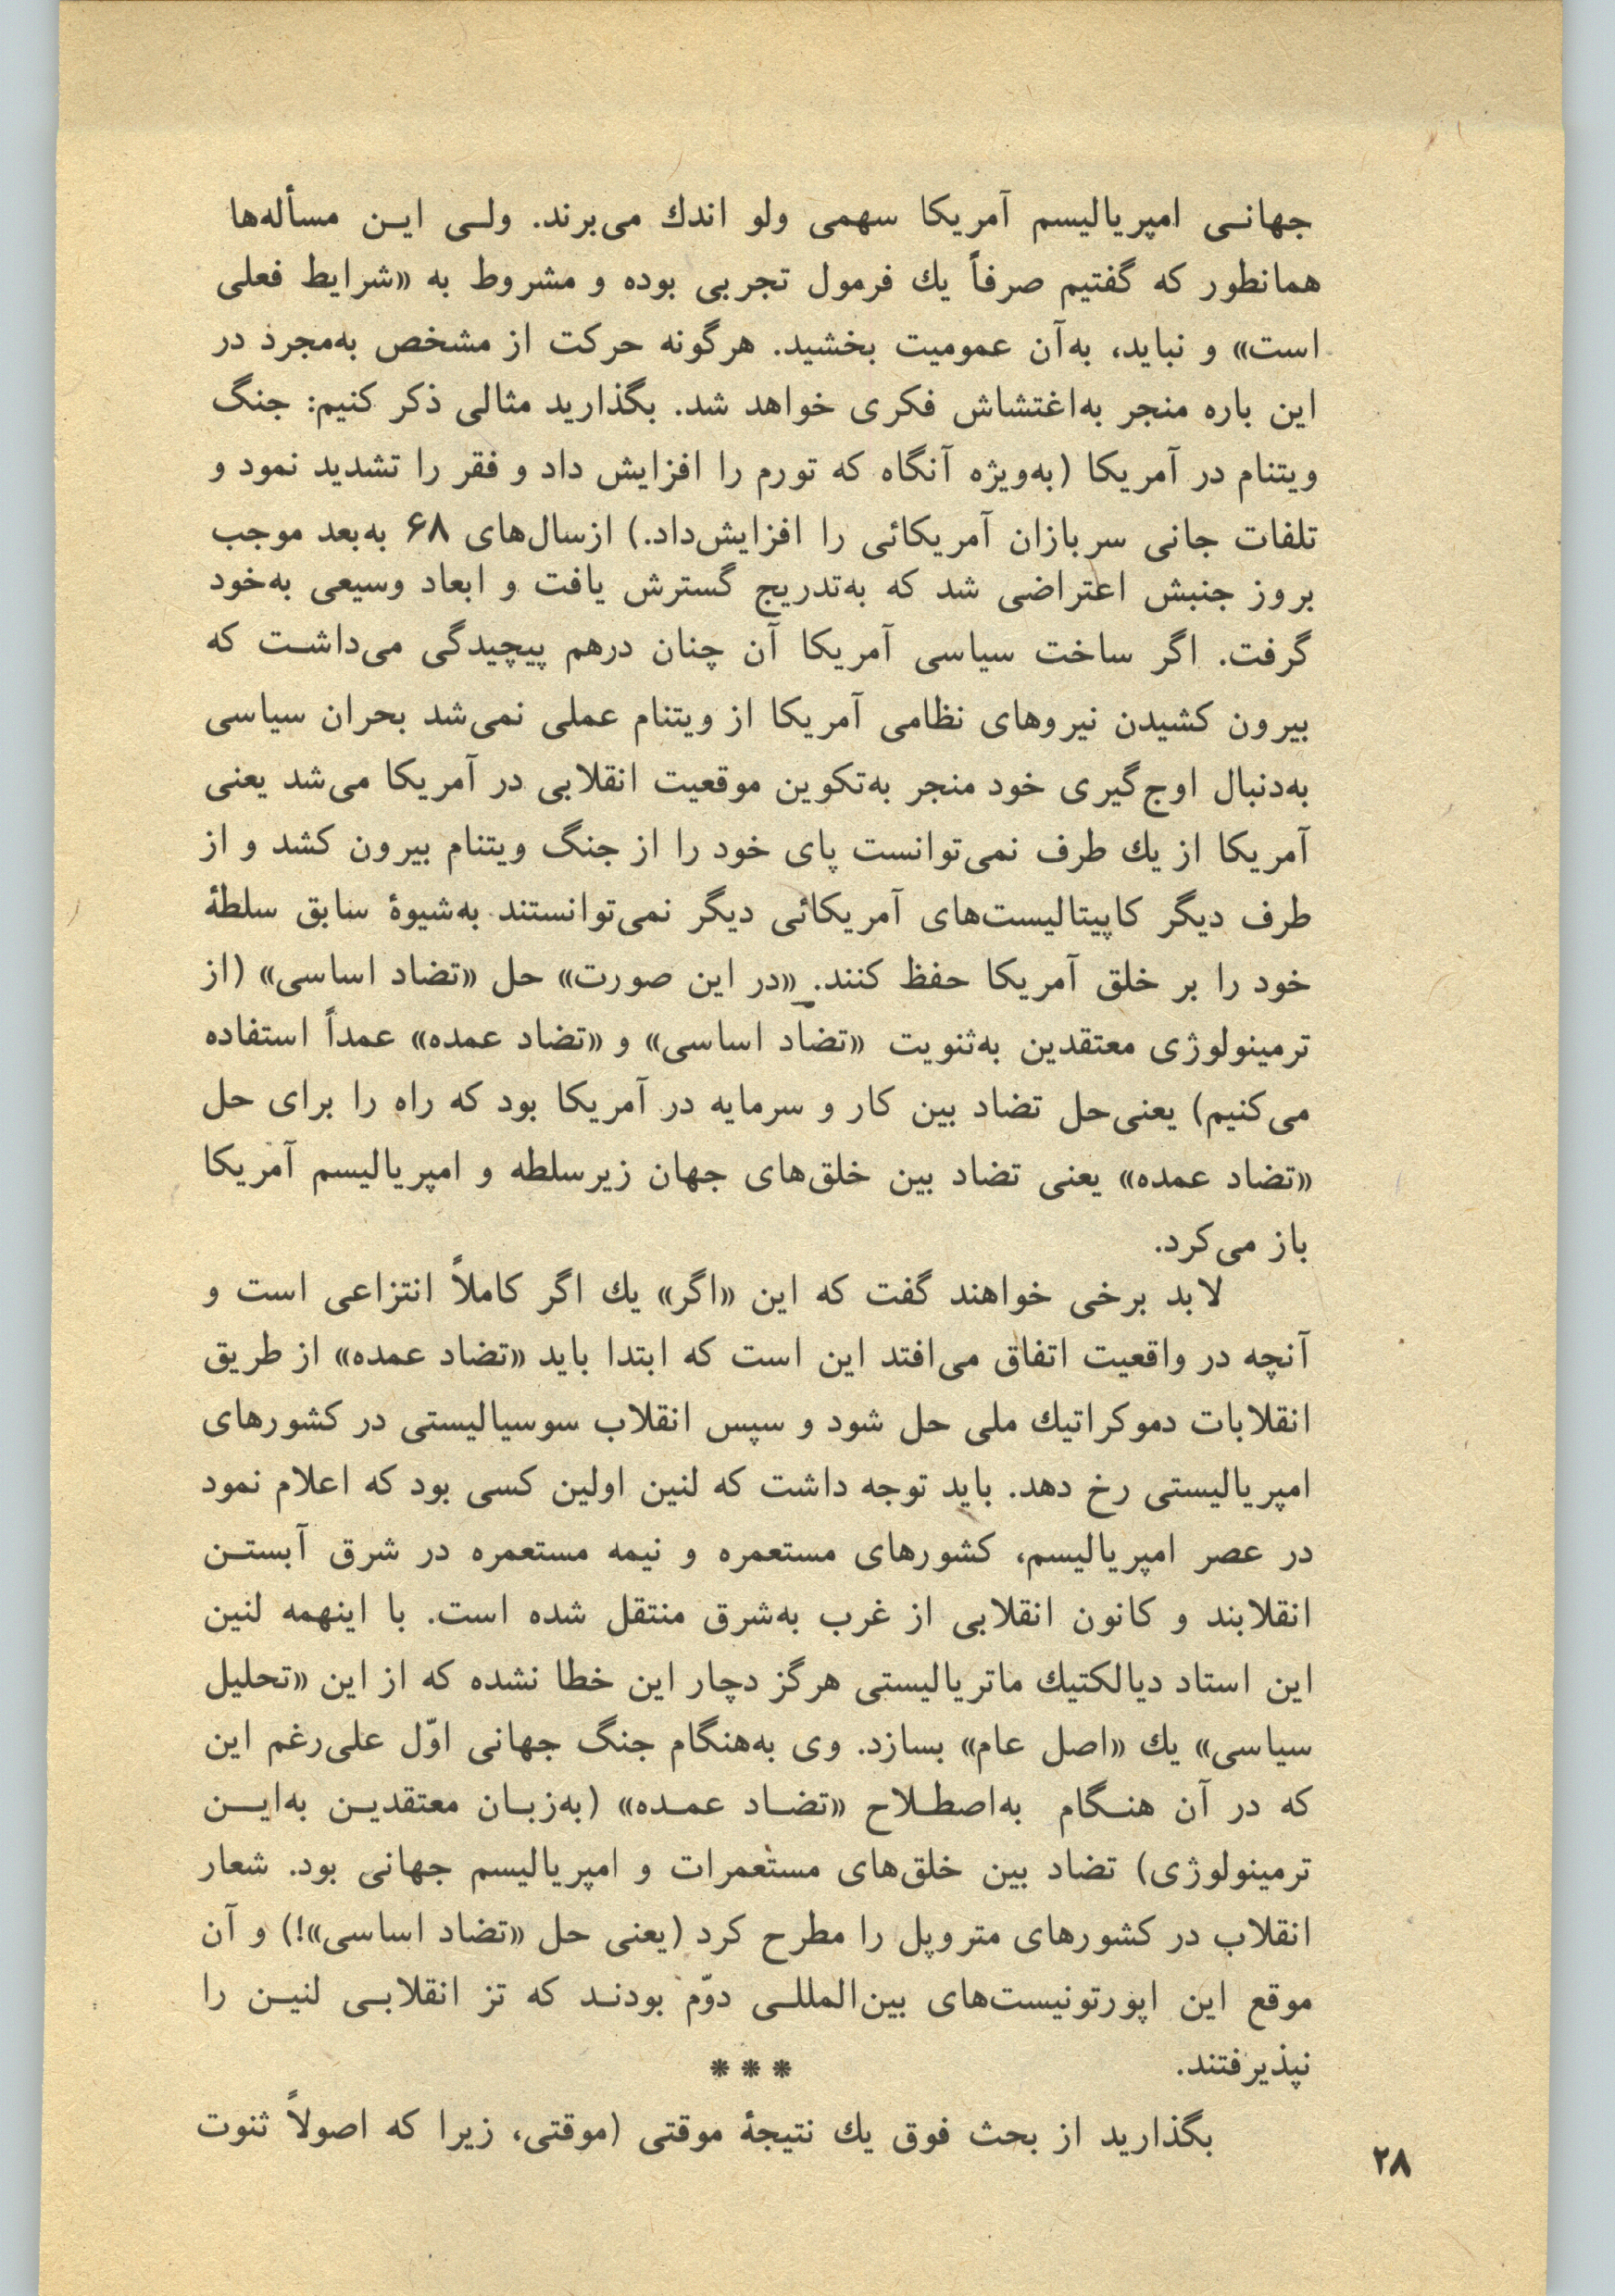 جهانـی امپریالیسم آمریکا سهمی ولو اندك می‌برند. ولـی ایـن مسأله‌ها
همانطور که گفتیم صرفاً یك فرمول تجربی بوده و مشروط به «شرایط فعلی
است» و نباید، به‌آن عمومیت بخشید. هرگونه حرکت از مشخص به‌مجرد در
این باره منجر به‌اغتشاش فکری خواهد شد. بگذارید مثالی ذکر کنیم: جنگ
ویتنام در آمریکا (به‌ویژه آنگاه که تورم را افزایش داد و فقر را تشدید نمود و
تلفات جانی سربازان آمریکائی را افزایش‌داد.) ازسال‌های ۶۸ به‌بعد موجب
بروز جنبش اعتراضی شد که به‌تدریج گسترش یافت و ابعاد وسیعی به‌خود
گرفت. اگر ساخت سیاسی آمریکا آن چنان درهم پیچیدگی می‌داشـت که
بیرون کشیدن نیروهای نظامی آمریکا از ویتنام عملی نمی‌شد بحران سیاسی
به‌دنبال اوج‌گیری خود منجر به‌تکوین موقعیت انقلابی در آمریکا می‌شد یعنی
آمریکا از یك طرف نمی‌توانست پای خود را از جنگ ویتنام بیرون کشد و از
طرف دیگر کاپیتالیست‌های آمریکائی دیگر نمی‌توانستند به‌شیوهٔ سابق سلطهٔ
خود را بر خلق آمریکا حفظ کنند. «در این صورت» حل «تضاد اساسی» (از
ترمینولوژی معتقدین به‌ثنویت «تضاد اساسی» و «تضاد عمده» عمداً استفاده
می‌کنیم) یعنی‌حل تضاد بین کار و سرمایه در آمریکا بود که راه را برای حل
«تضاد عمده» یعنی تضاد بین خلق‌های جهان زیرسلطه و امپریالیسم آمریکا
باز می‌کرد.
لابد برخی خواهند گفت که این «اگر» یك اگر کاملاً انتزاعی است و
آنچه در واقعیت اتفاق می‌افتد این است که ابتدا باید «تضاد عمده» از طریق
انقلابات دموکراتیك ملی حل شود و سپس انقلاب سوسیالیستی در کشورهای
امپریالیستی رخ دهد. باید توجه داشت که لنین اولین کسی بود که اعلام نمود
در عصر امپریالیسم، کشورهای مستعمره و نیمه مستعمره در شرق آبستـن
انقلابند و کانون انقلابی از غرب به‌شرق منتقل شده است. با اینهمه لنین
این استاد دیالکتیك ماتریالیستی هرگز دچار این خطا نشده که از این «تحلیل
سیاسی» یك «اصل عام» بسازد. وی به‌هنگام جنگ جهانی اوّل علی‌رغم این
که در آن هنـگام به‌اصطـلاح «تضـاد عمـده» (به‌زبـان معتقدیـن به‌ایـــن
ترمینولوژی) تضاد بین خلق‌های مستعمرات و امپریالیسم جهانی بود. شعار
انقلاب در کشورهای متروپل را مطرح کرد (یعنی حل «تضاد اساسی»!) و آن
موقع این اپورتونیست‌های بین‌المللـی دوّم بودنـد که تز انقلابـی لنیـن را
نپذیرفتند.
***
بگذارید از بحث فوق یك نتیجهٔ موقتی (موقتی، زیرا که اصولاً ثنوت
۲۸